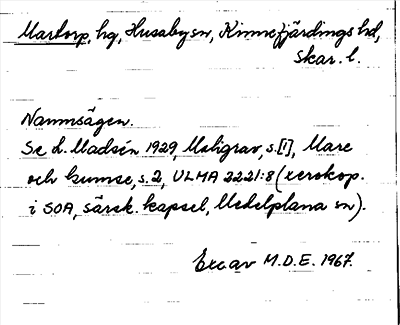 Martorp, hg, Husaby sn, Kinnefjärdings hd,
Skar. l.
Namnsägen.
Se L. Madsén 1929, Maligrav, s.[1], Mare
och kumse, s. 2, ULMA 2221:8 (xerokop.
i SOA, särsk. kapsel, Medelplana sn).
Exc av M.D.E. 1967.